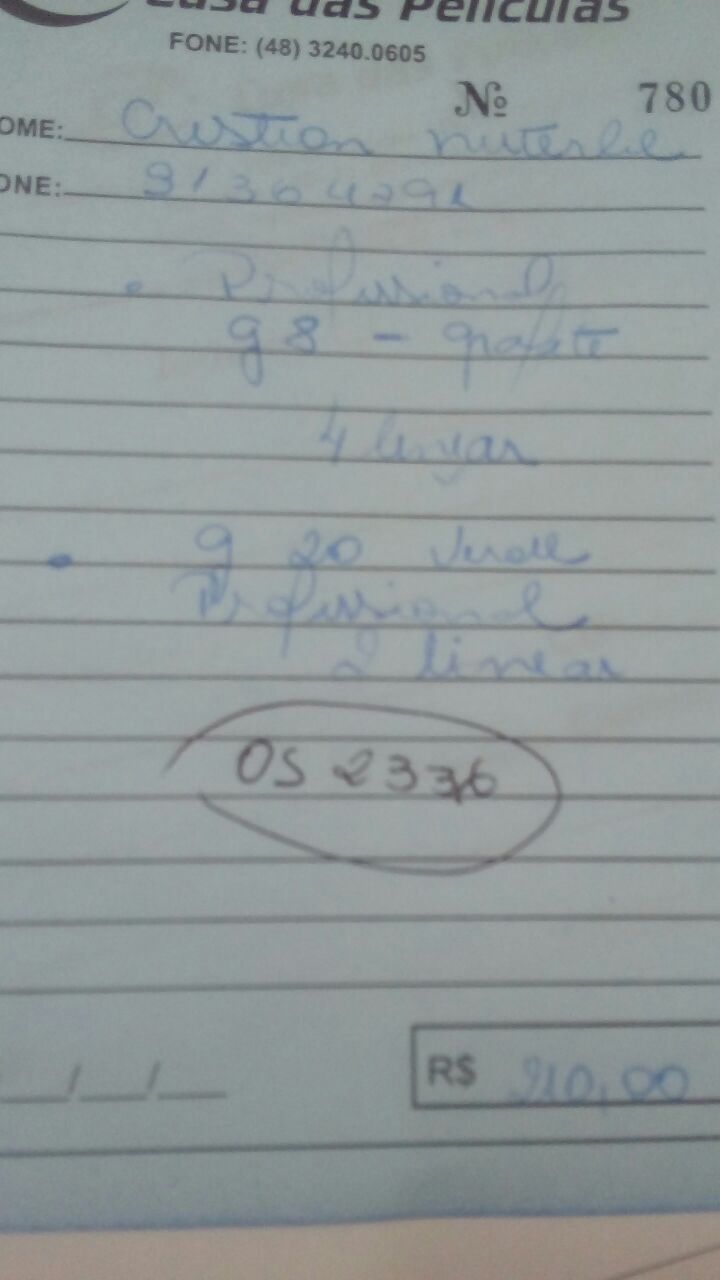 Casa das Películas
FONE: (48) 3240.0605
Nº 780
OME: Cristian
ONE: 91364291
• Profissional
g8 - grafite
4 linear
• g 20 verde
Profissional
2 linear
OS 2336
__/__/__
R$ 210,00